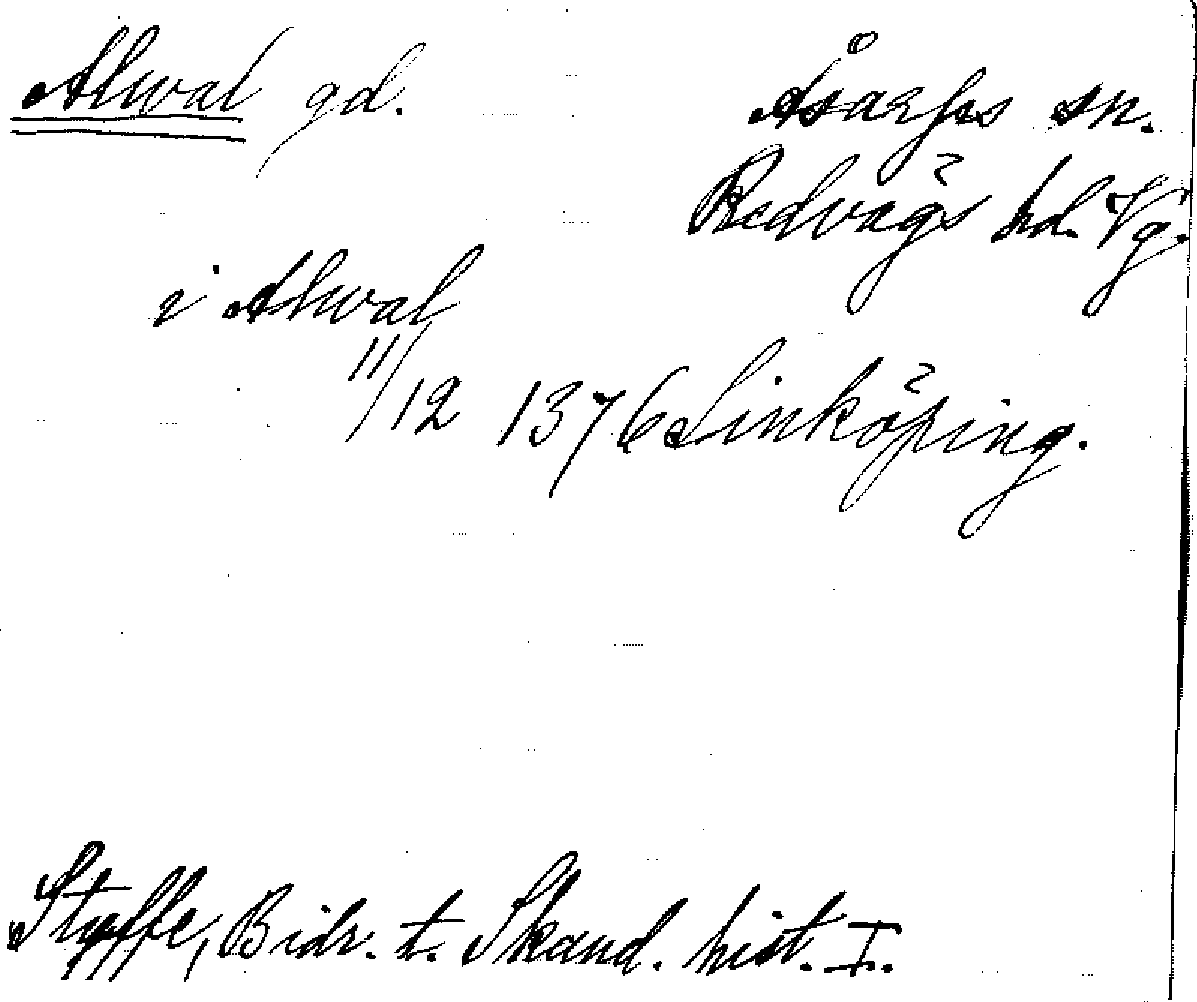 Alwal gd.
Åsarps sn.
Redvägs hd. Vg.
i Alwal
11/12 1376 Linköping.
Styffe, Bidr. t. Skand. hist. I.